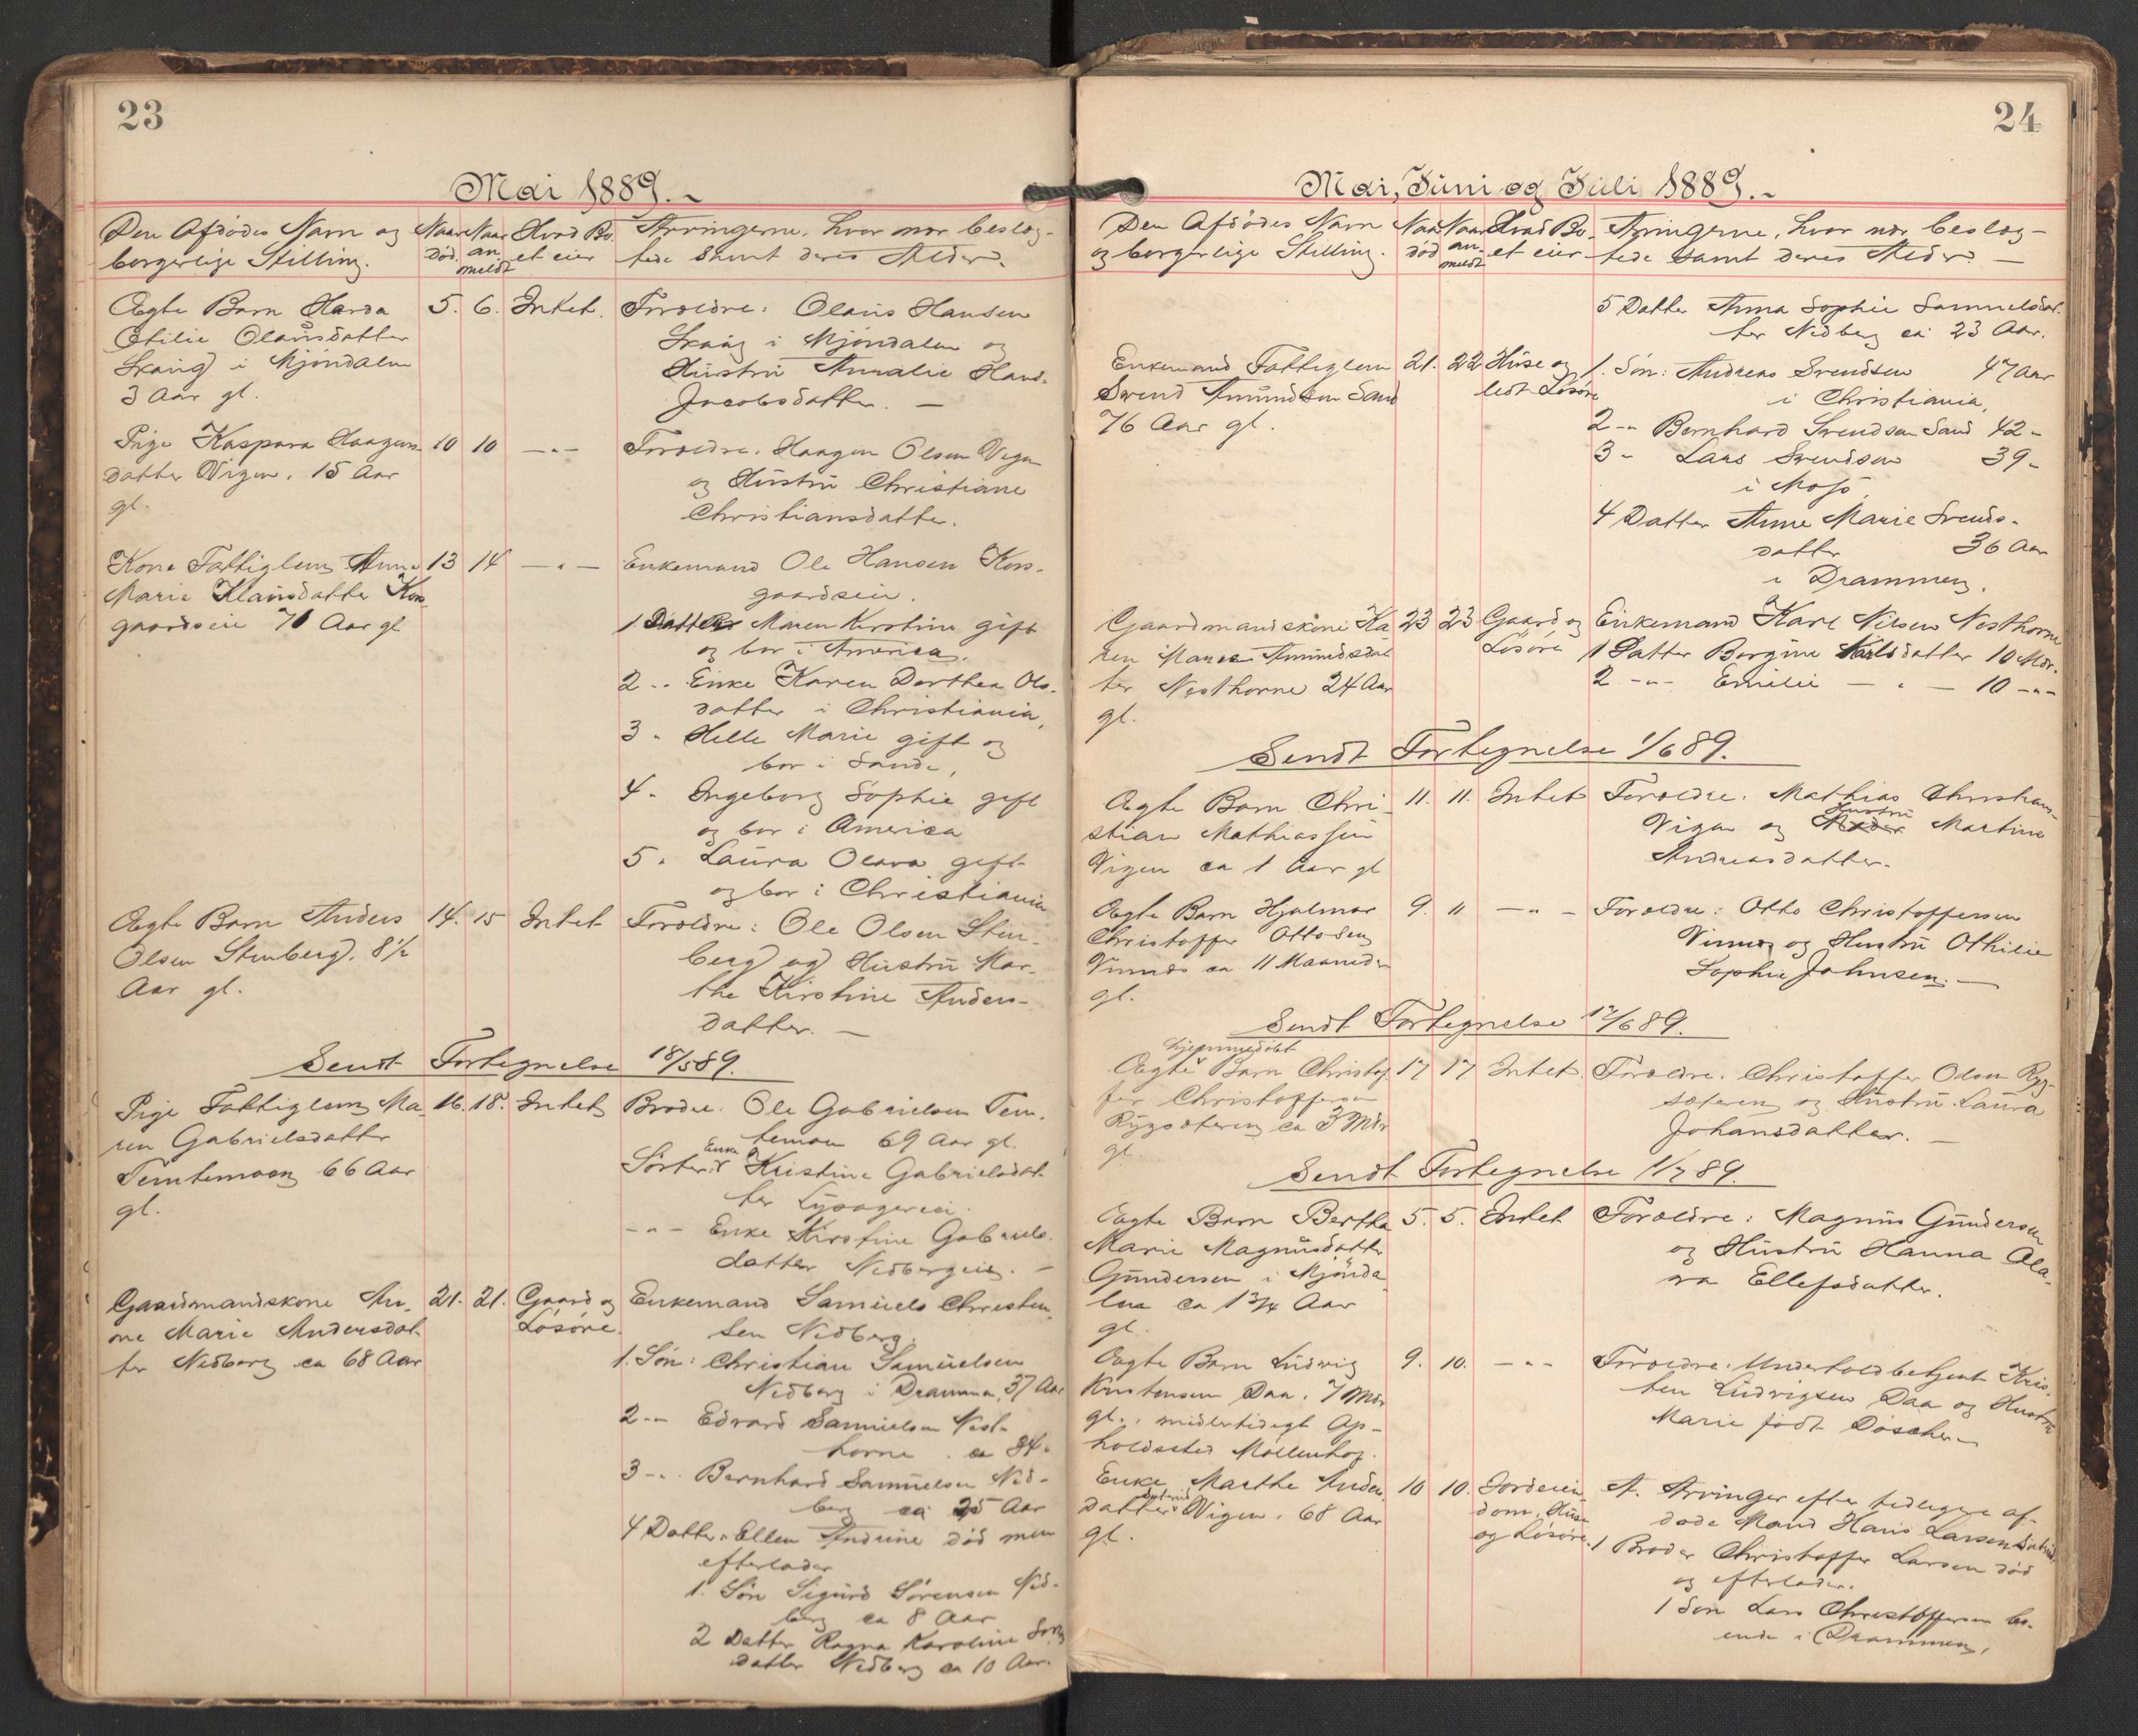 23
Mai 1889.
Den Afdødes Navn og
borgerlige Stilling.
Naar
død.
Naar
an
meldt
Hvad Bo
et eier
Arvingerne, hvor nær beslæg-
tede samt deres Alder.
Ægte Barn Harda
Otilie Olausdatter
Skaug i Mjøndalen
3 Aar gl.
5. 6. Intet.
Forældre: Olaus Hansen
Skaug i Mjøndalen og
Hustru Annalie
Jacobsdatter. —
Pige Kaspara Haagens-
datter Vigen. 15 Aar
gl.
10 10 — " —
Forældre. Haagen Olsen Vigen
og Hustru Christiane
Christiansdatter.
Kone Fattiglem Anne
Marie Klausdatter Kors
gaardseie 71 Aar gl
13 14 — " —
Enkemand Ole Hansen Kors-
gaardseie.
1 Datter Maren Kirstine gift
og bor i America,
2 - " Enke Karen Dorthea Ols-
datter i Christiania,
3 - Helle Marie gift og
bor i Sande,
4 - Ingeborg Sophie gift
og bor i America
5 - Laura Olava gift
og bor i Christiania
Ægte Barn Anders
Olsen Stenberg, 8½
Aar gl.
14. 15 Intet
Forældre: Ole Olsen Sten-
berg og Hustru Mar-
the Kirstine Anders-
datter. —
Sendt Fortegnelse 18/5 89.
Pige Fattiglem Ma-
ren Gabrielsdatter
Temtemoen 66 Aar
gl.
16. 18. Intet
Broder. Ole Gabrielsen Tem-
temoen 69 Aar gl.
Søster: Enke Kristine Gabrielsdat-
ter
- " - Enke Kirstine Gabriels-
datter Nedbergeie. —
Gaardmandskone An-
ne Marie Andersdat-
ter Nedberg ca 68 Aar
21. 21. Gaard og
Løsøre.
Enkemand Samuels Christen
sen Nedberg.
1. Søn: Christian Samuelsen
Nedberg i Drammen, 37 Aar
2 - " Edvard Samuelsen Nest-
horne . ca 34 "
3 - " Bernhard Samuelsen Ned-
berg ca 25 Aar
4 Datter: Ellen Andrine død men
efterlader
1. Søn Sigurd Sørensen Ned-
berg ca 8 Aar
2 Datter Ragna Karoline Sørens
datter Nedberg ca 10 Aar.
24
Mai, Juni og Juli 1889.
Den Afdødes Navn
og borgerlige Stilling.
Naar
død
Naar
an
meldt
Hvad Bo-
et eier
Arvingerne, hvor nær beslæg-
tede samt deres Alder. —
5 Datter Anna Sophie Samuelsdat-
ter Nedberg ca 23 Aar.
Enkemand Fattiglem
Svend Amundsen Sand
76 Aar gl.
21. 22 Huse og
lidt Løsøre
1. Søn: Andreas Svendsen 47 Aar
i Christiania,
2 - " Bernhard Svendsen Sand 42 "
3 - Lars Svendsen 39 "
i Moss,
4 Datter Anne Marie Svends-
datter 36 Aar
i Drammen.
Gaardmandskone Ka
ren Marie Amundsdat
ter Nesthorne 24 Aar
gl.
23 23 Gaard og
Løsøre
Enkemand Karl Nilsen Nesthorne
1 Datter Borgine Karlsdatter 10 Mdr.
2 - " - Emilie — " — 10 - " -
Sendt Fortegnelse 1/6 89.
Ægte Barn Chri-
stian Mathiassen
Vigen ca 1 Aar gl
11. 11. Intet
Forældre. Mathias Christians-
Vigen og Hustru Martine
Andreasdatter.
Ægte Barn Hjalmar
Christoffer Ottosen
Vinnes ca 11 Maaneder
gl.
9. 11 — " —
Forældre: Otto Christoffersen
Vinnes og Hustru Othilie
Sophie Johnsen. —
Sendt Fortegnelse 12/6 89.
hjemmedøbt
Ægte Barn Christof
fer Christoffersen
Rygsæteren ca 3 Mdr
gl.
17 17 Intet.
Forældre. Christoffer Olsen Ryg-
sæteren og Hustru Laura
Johansdatter. —
Sendt Fortegnelse 1/7 89.
Ægte Barn Bertha
Marie Magnusdatter
Gundersen i Mjønda-
len ca 1 3/4 Aar
gl.
5. 5. Intet
Forældre: Magnus Gundersen
og Hustru Hanna Ola-
va Ellefsdatter.
Ægte Barn Ludvig
Kristensen Daa. 7 Mdr
gl., midlertidigt Op-
holdssted Møllenhof.
9. 10. — " —
Forældre: Underfoldbetjent Kris-
ten Ludvigsen Daa og Hustru
Marie født Døscher.
Enke Marthe Anders
datter Vigen. 68 Aar
gl.
10 10. Jordeien-
dom, Huse
og Løsøre.
A. Arvinger efter tidligere af-
døde Mand Hans Larsen
1 Broder Christoffer Larsen død
og efterlader.
1 Søn Lars Christoffersen bo-
ende i Drammen,